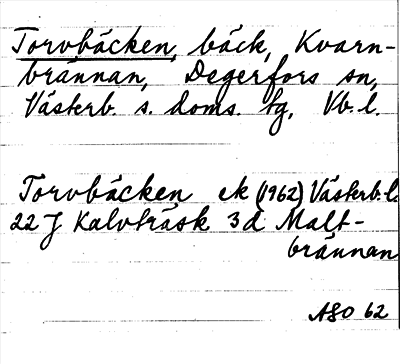 Torvbäcken, bäck, Kvarn-
brännan, Degerfors sn,
Västerb. s. doms. tg, Vb. l.
Torvbäcken ek (1962) Västerb. l.
22 J Kalvträsk 3d Malt-
brännan
ASO 62